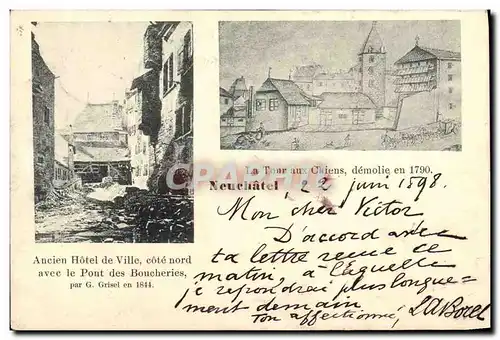 La Tour aux Chiens, démolie en 1790.
Neuchâtel 22 juin 1898.
Mon cher Victor
D'accord avec
ta lettre reçue ce
matin, à laquelle
je repondrai plus longue=
ment demain
Ton affectionné,
Ancien Hôtel de Ville, côté nord
avec le Pont des Boucheries,
par G. Grisel en 1844.
CPA